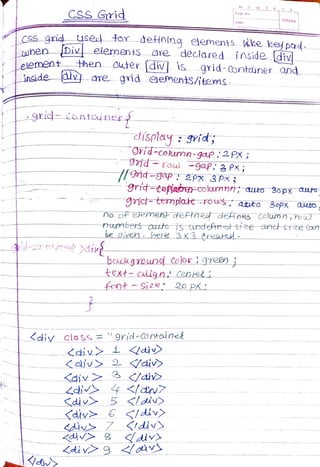 CSS Grid
CSS grid used for defining elements like keypad.
when [Div] elements are declared inside [div]
element then outer [div] is grid-container and
inside [div] are grid elements/items
.grid-container{
display : grid;
Grid-column-gap : 2px;
grid - row -gap : 3px;
// Grid-gap : 2px 3px;
grid - columnn; auto 80px auto
grid-template-rows; auto 80px auto
no of element defined defines column, row
numbers auto is undefined size and size can
be given. here 3x3 created.
>div{
background color : green;
text-align: center;
font-size: 20px;
}
<div class = "grid-container
<div> 1 </div>
<div> 2 </div>
<div> 3 </div>
<div> 4 </div>
<div> 5 </div>
<div> 6 </div>
<div> 7 </div>
<div> 8 </div>
<div> 9 </div>
</div>